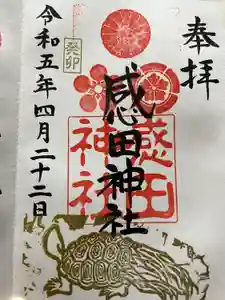 奉拝
感田神社
感田神社
癸卯
令和五年四月二十二日